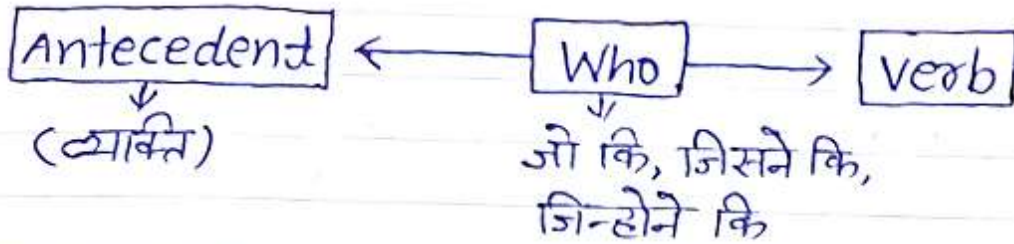 Antecedent ← Who → verb
(व्यक्ति) जो कि, जिसने कि,
जिन्होने कि